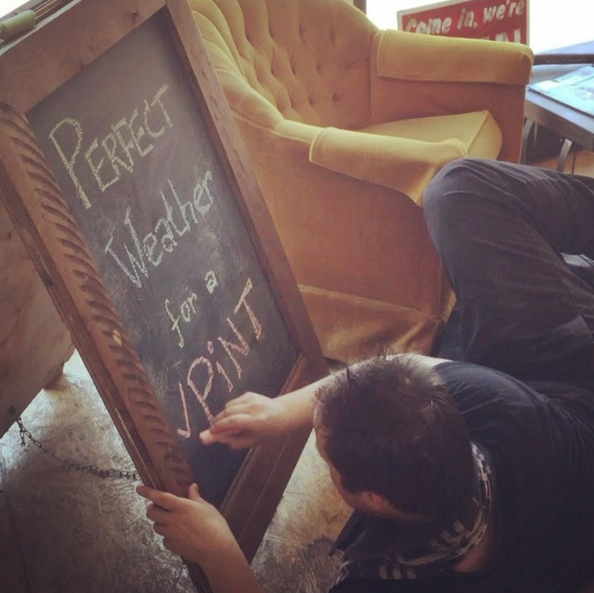 PERFECT
Weather
for a
PiNT
Come in, we're